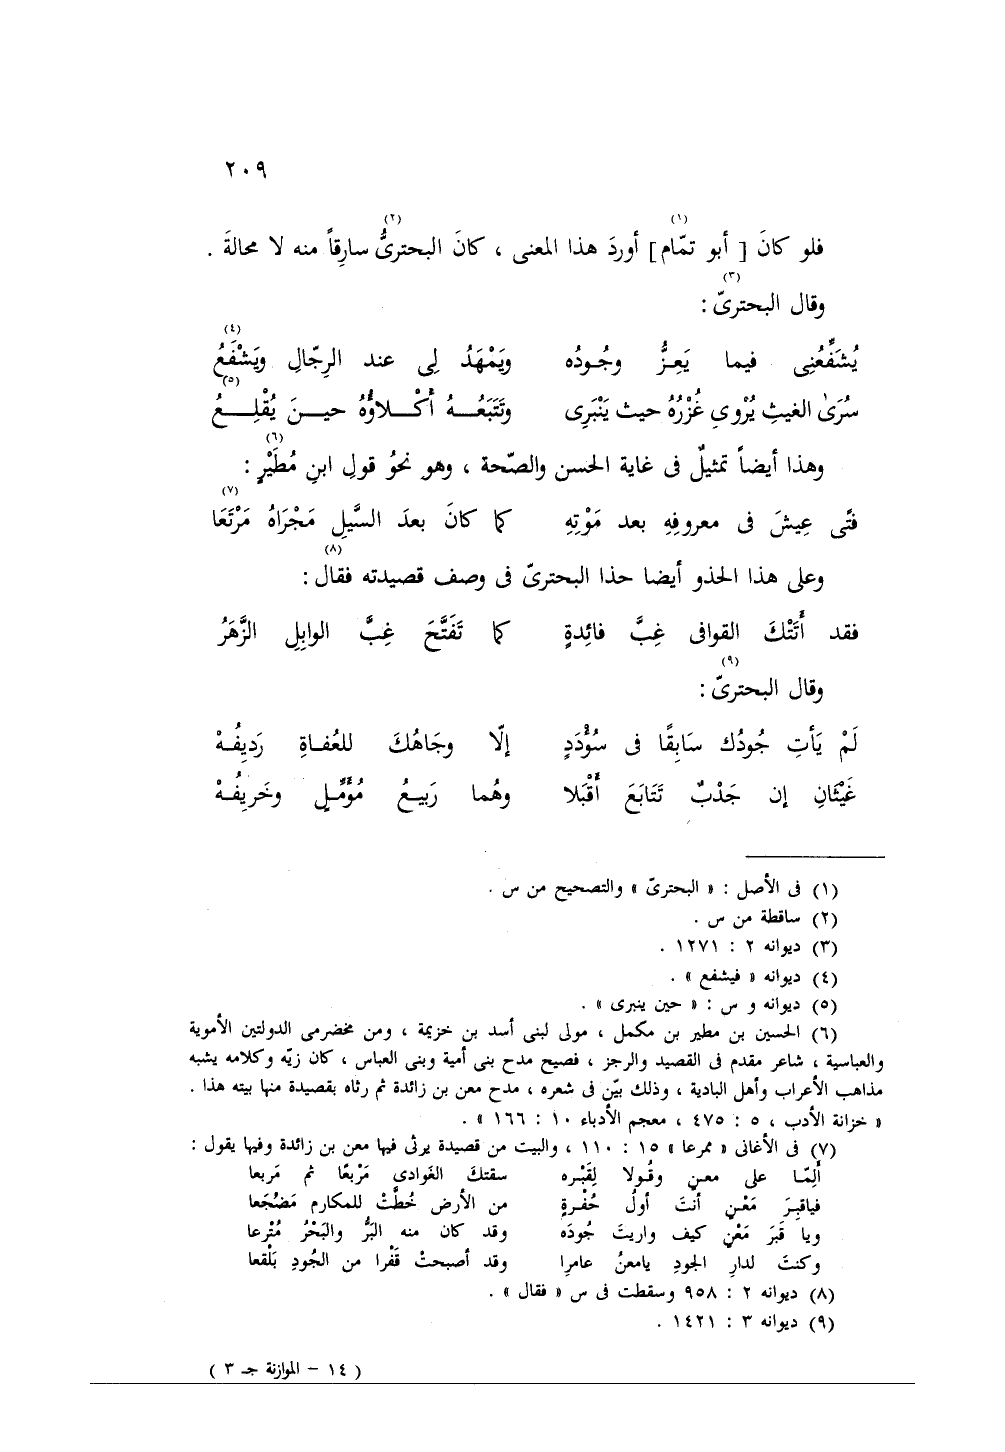 ٢٠٩
فلو كانَ [ أبو تمّام (١) ] أوردَ هذا المعنى ، كانَ البحترىُّ (٢) سارِقاً منه لا محالةَ .
وقال البحترىّ (٣) :
يُشَفِّعُنِى فيما يَعِزُّ وجُودُه ويَمْهَدُ لِى عند الرِجّالِ ويَشْفَعُ (٤)
سُرَىٰ الغيثِ يُرْوِي غُزْرُهُ حيث يَنْبَرِى وتَتبَعُهُ أكْلاؤُهُ حينَ يُقْلِعُ (٥)
وهذا أيضاً تمثيلٌ فى غاية الحسن والصّحة ، وهو نحوُ قولِ ابنِ مُطَيْرٍ (٦) :
فتًى عِيشَ فى معروفِهِ بعد مَوْتِهِ كما كانَ بعدَ السَّيلِ مَجْرَاهُ مَرْتَعَا (٧)
وعلى هذا الحذو أيضا حذا البحترىّ فى وصف قصيدته فقال (٨) :
فقد أَتَتْكَ القوافى غِبَّ فائِدةٍ كما تَفَتَّحَ غِبَّ الوابِلِ الزَّهَرُ
وقال البحترىّ (٩) :
لَمْ يَأتِ جُودُك سَابِقًا فى سُؤْدَدٍ إلّا وجَاهُكَ للعُفاةِ رَدِيفُهْ
غَيْثَانِ إن جَدْبٌ تَتَابَعَ أقْبَلا وهُما رَبيعُ مُؤَمِّلٍ وخَرِيفُهْ
(١) فى الأصل : « البحترىّ » والتصحيح من س .
(٢) ساقطة من س .
(٣) ديوانه ٢ : ١٢٧١ .
(٤) ديوانه « فيشفع » .
(٥) ديوانه و س : « حين ينبرى » .
(٦) الحسين بن مطير بن مكمل ، مولى لبنى أسد بن خزيمة ، ومن مخضرمى الدولتين الأموية
والعباسية ، شاعر مقدم فى القصيد والرجز ، فصيح مدح بنى أمية وبنى العباس ، كان زيّه وكلامه يشبه
مذاهب الأعراب وأهل البادية ، وذلك بيّن فى شعره ، مدح معن بن زائدة ثم رثاه بقصيدة منها بيته هذا .
« خزانة الأدب ، ٥ : ٤٧٥ ، معجم الأدباء ١٠ : ١٦٦ » .
(٧) فى الأغانى « ممرعا » ١٥ : ١١٠ ، والبيت من قصيدة يرثى فيها معن بن زائدة وفيها يقول :
أَلِمّا على معنٍ وقُولا لِقَبْره سقتكَ الغَوادى مَرْبعًا ثم مَربعا
فياقبرَ مَعْنٍ أنتَ أولُ حُفْرةٍ من الأرض خُطَّتْ للمكارم مَضْجَعا
ويا قَبَرَ مَعْنٍ كيف واريتَ جُودَه وقد كان منه البَرُّ والبَحْرُ مُتْرعا
وكنتَ لدارِ الجودِ يامعنُ عامرا وقد أصبحتْ قَفْرا من الجُودِ بَلْقعا
(٨) ديوانه ٢ : ٩٥٨ وسقطت فى س « فقال » .
(٩) ديوانه ٣ : ١٤٢١ .
( ١٤ – الموازنة جـ ٣ )